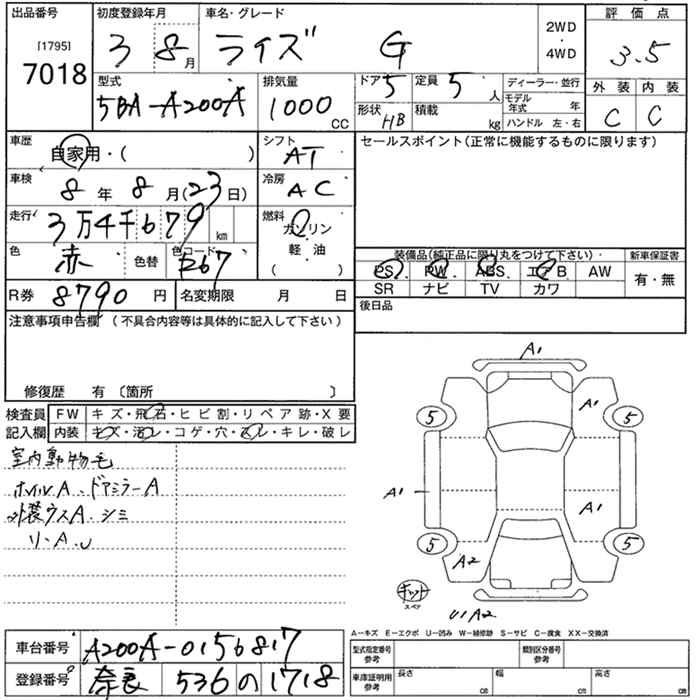 出品番号 初度登録年月 車名・グレード 2WD・4WD 評価点
[1795] 7018 3 8月 ライズ G 3.5
型式 排気量 ドア 5 定員 5人 ディーラー・並行 外装 内装
5BA-A200A 1000CC 形状 HB 積載 kg モデル年式 年 C C
ハンドル 左・右
車歴 自家用・( ) シフト AT セールスポイント(正常に機能するものに限ります)
車検 8年 8月(23日) 冷房 AC
走行 3万4千679km 燃料 ガソリン
軽・油
( )
色 赤 色替 色コード 装備品(純正品に限り丸をつけて下さい) 新車保証書
PS PW ABS エアB AW 有・無
SR ナビ TV カワ
R券 8790円 名変期限 月 日 後日品
注意事項申告欄 (不具合内容等は具体的に記入して下さい)
修復歴 有 〔箇所 〕
検査員 FW キズ・飛石・ヒビ割・リペア跡・X要
記入欄 内装 キズ・汚レ・コゲ・穴・スレ・キレ・破レ
室内動物毛
ホイルA、ドアミラーA
外装ウスA、シミ
リーA.U
A1
5 A1 5
A1 A1
5 A2 5
キット
スペア
A2
A-キズ E-エクボ U-凹み W-補修跡 S-サビ C-腐食 XX-交換済
車台番号 A200A-0156817 型式指定番号 参考 類別区分番号 参考
登録番号 奈良 536 の 1718 車庫証明用 参考 長さ cm 幅 cm 高さ cm